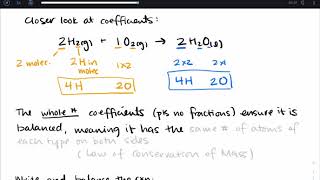 Closer look at coefficients:
2H₂(g) + 1O₂(g) → 2H₂O(l)
2 molec. 2H in molec 1x2 2x2 2x1
4H 2O 4H 2O
The whole # coefficients (pls no fractions) ensure it is
balanced, meaning it has the same # of atoms of
each type on both sides
(Law of Conservation of Mass)
Write and balance the rxn: